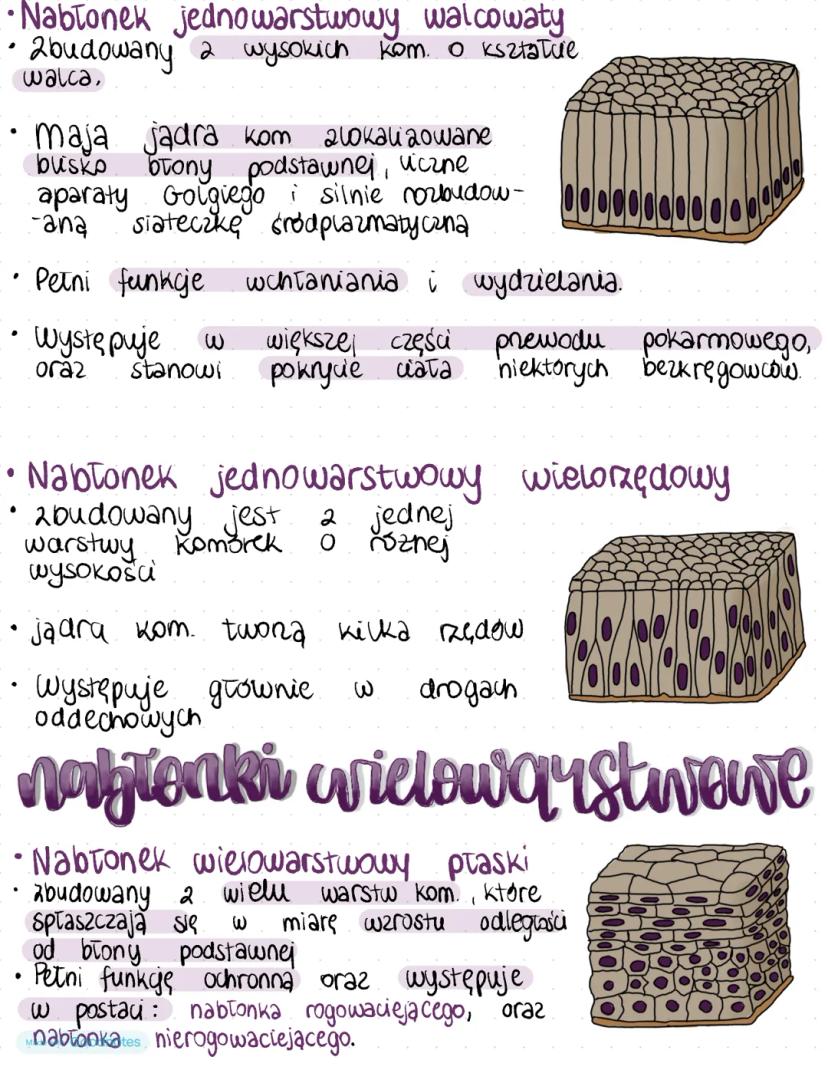 • Nabłonek jednowarstwowy walcowaty
• Zbudowany z wysokich kom. o kształcie
walca.
• Mają jądra kom zlokalizowane
blisko błony podstawnej, liczne
aparaty Golgiego i silnie rozbudow-
-aną siateczkę śródplazmatyczną
• Pełni funkcje wchłaniania i wydzielania.
• Występuje w większej części przewodu pokarmowego,
oraz stanowi pokrycie ciała niektórych bezkręgowców.
• Nabłonek jednowarstwowy wielorzędowy
• zbudowany jest z jednej
warstwy komórek o różnej
wysokości
• jądra kom. tworzą kilka rzędów
• Występuje głównie w drogach
oddechowych
nabłonki wielowarstwowe
• Nabłonek wielowarstwowy płaski
• zbudowany z wielu warstw kom., które
spłaszczają się w miarę wzrostu odległości
od błony podstawnej
• Pełni funkcję ochronną oraz występuje
w postaci: nabłonka rogowaciejącego, oraz
nabłonka nierogowaciejącego.